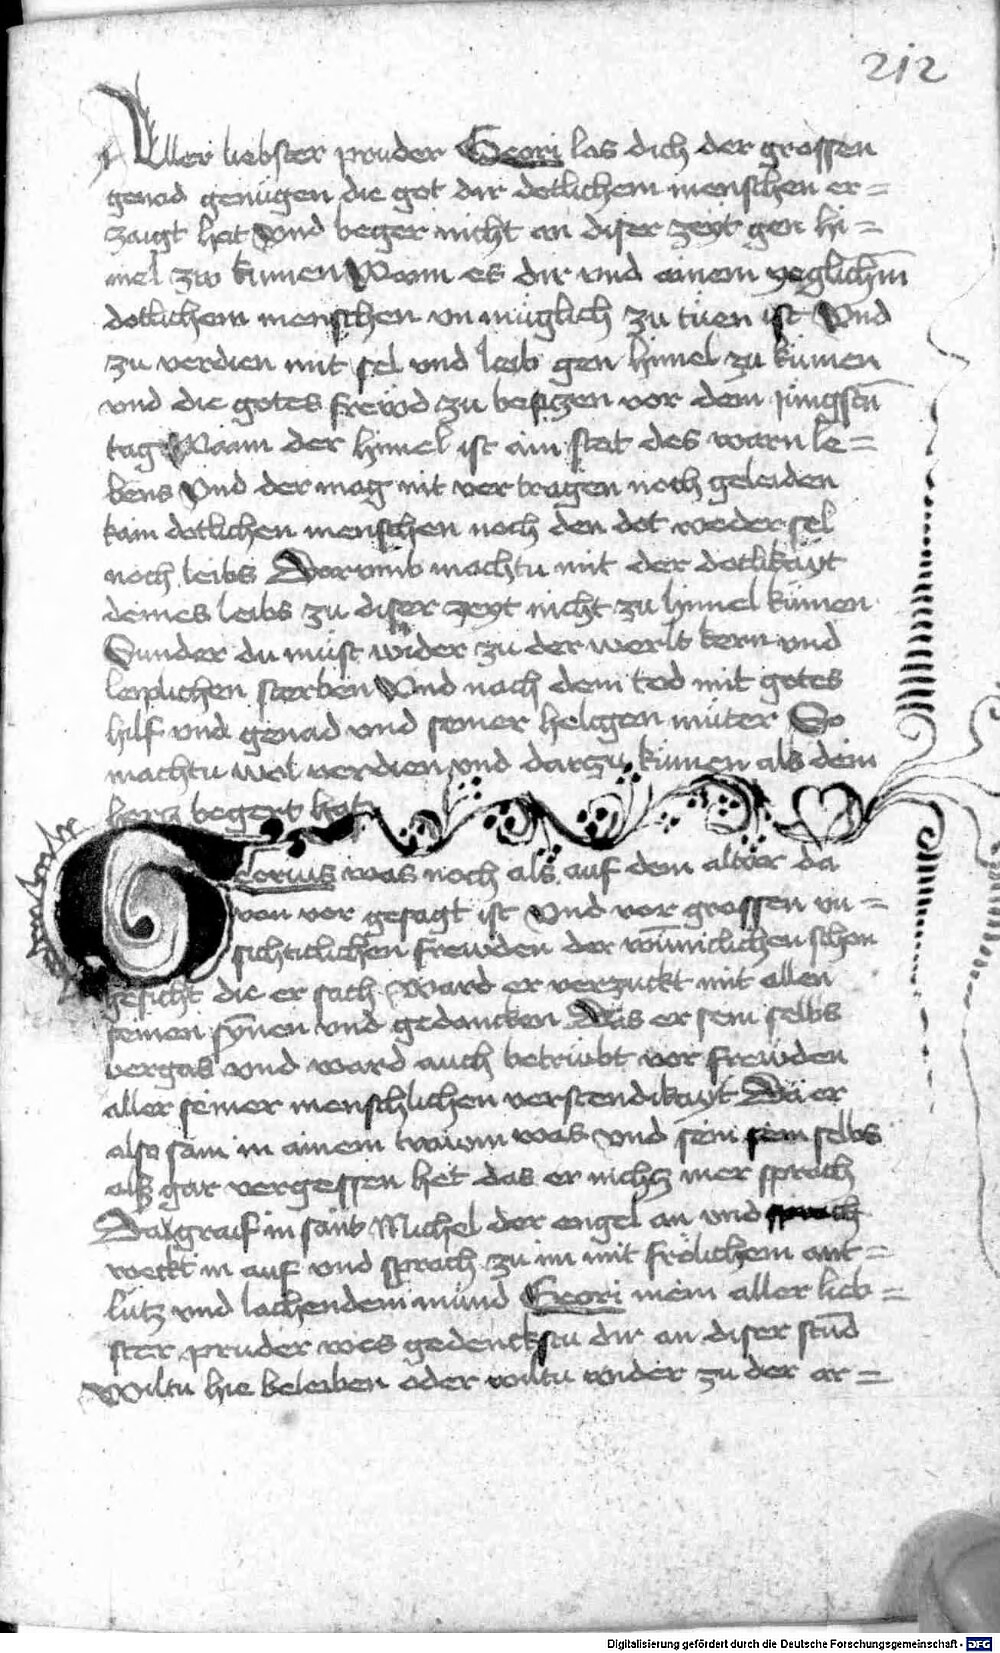 212
Aller liebster pruder Geori las dich der grossen
genad genügen die got dir dotlichem menschen er=
zaigt hat Vnd beger nicht an diser zeyt gen hi=
mel zw kumen Wann es dir vnd ainem yeglichm̄
dotlichem menschen vn müglich zu tüen ist Vnd
zu verdien mit sel vnd leib gen himel zu kümen
vnd die gotes frewd zu besiczen vor dem jüngstn̄
tag Wann der himel ist ain stat des warn le=
bens Vnd der mag nit ver tragen noch geleiden
kain dotlichen menschen noch den dot weder sel
noch leibs Dorumb machtu mit der dotlikayt
deines leibs zu diser zeyt nicht zu himel kümen
Sunder du müst wider zu der werlt kern vnd
leiplichen sterben Vnd nach dem tod mit gotes
hilf vnd genad vnd seiner heligen müter So
machtu wol verdien vnd darzu kümen als dein
hercz begert hat
Georius was noch als auf dem altar da
von vor gesagt ist Vnd vor grossen vn=
sichticlichen frewden der wünniclichen schon
gesicht die er sach Ward er verzuckt mit allen
seinen synnen vnd gedancken Das er sein selbs
vergas vnd ward auch betrübt vor frewden
aller seiner menschlichen verstendikayt Da er
also sam in ainem trawm was vnd sein selbs
als gar vergessen het das er nichcz mer sprach
Da graif in sant Michel der engel an vnd
weckt in auf vnd sprach zu im mit frölichem ant=
lütz vnd lachendem mund Geori mein aller lieb=
ster pruder wes gedenckstu dir an diser stund
Wiltu hie beleiben oder wiltu wider zu der ar=
Digitalisierung gefördert durch die Deutsche Forschungsgemeinschaft - DFG